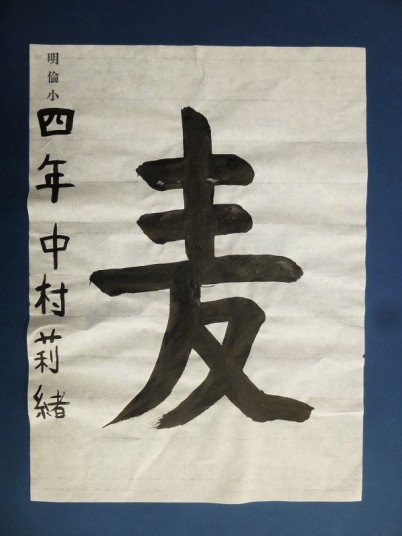 麦
明倫小
四年 中村莉緒